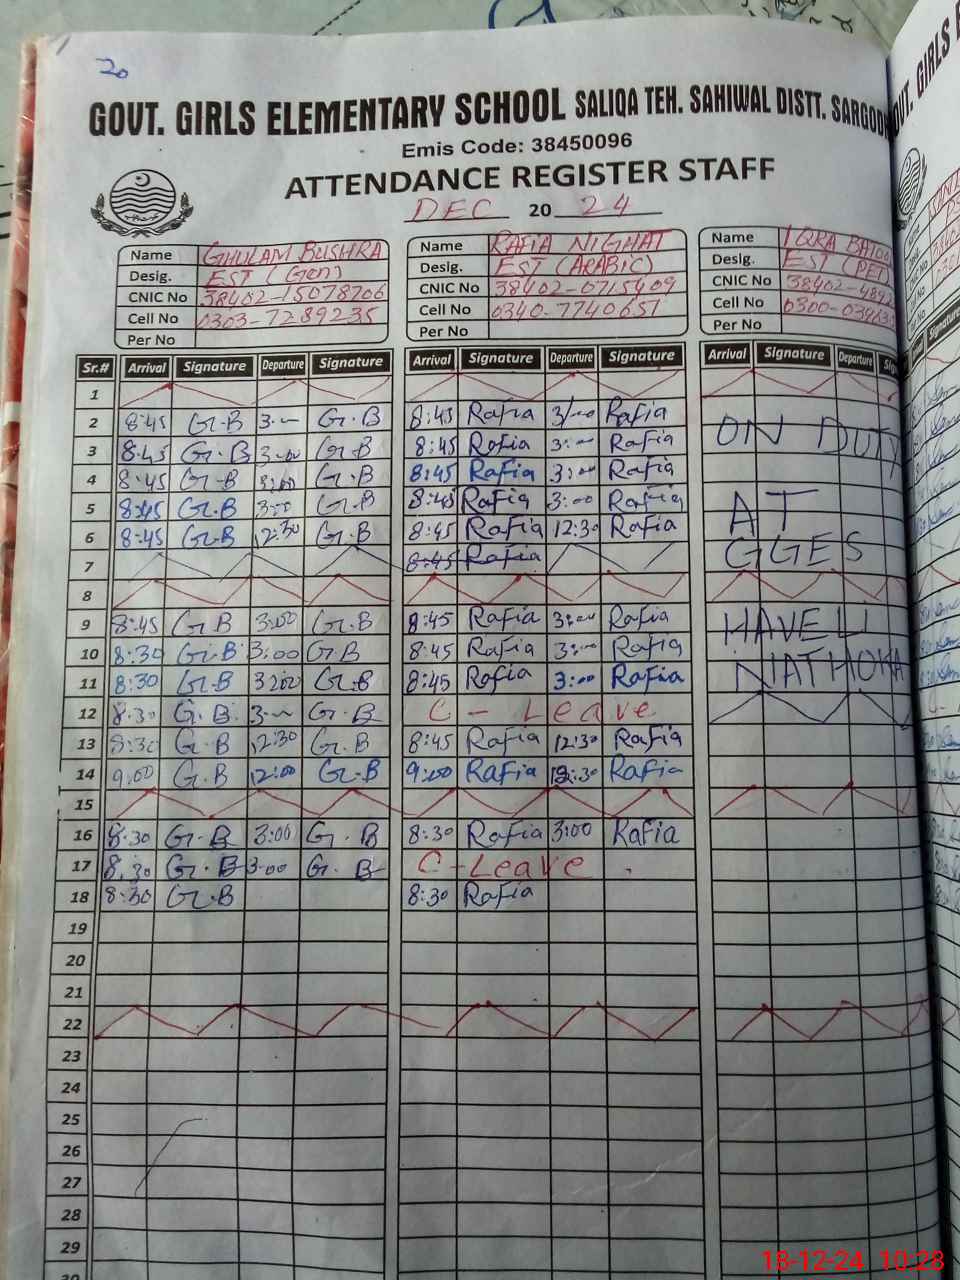 20
GOVT. GIRLS ELEMENTARY SCHOOL SALIQA TEH. SAHIWAL DISTT. SARGODH
Emis Code: 38450096
ATTENDANCE REGISTER STAFF
DEC 20 24
Name GHULAM BUSHRA Name RAFIA NIGHAT Name IQRA BATOO
Desig. EST (Gen) Desig. EST (ARABIC) Desig. EST (PET)
CNIC No 38402-15078706 CNIC No 38402-0715409 CNIC No 38402-
Cell No 0303-7289235 Cell No 0340-7740657 Cell No 0300-
Per No Per No Per No
Sr.# Arrival Signature Departure Signature Arrival Signature Departure Signature Arrival Signature Departure Sig
1
2 8:45 G.B 3:-- G.B 8:45 Rafia 3/-00 Rafia
3 8:45 G.B 3:00 G.B 8:45 Rafia 3:00 Rafia ON DUTY
4 8:45 G.B 3:00 G.B 8:45 Rafia 3:00 Rafia
5 8:45 G.B 3:00 G.B 8:45 Rafia 3:00 Rafia AT
6 8:45 G.B 12:30 G.B 8:45 Rafia 12:30 Rafia
7 8:45 Rafia GGES
8
9 8:45 G.B 3:00 G.B 8:45 Rafia 3:00 Rafia HAVELI
10 8:30 G.B 3:00 G.B 8:45 Rafia 3:00 Rafia
11 8:30 G.B 3:00 G.B 8:45 Rafia 3:00 Rafia NATHOKA
12 8:30 G.B 3:-- G.B C - Leave
13 8:30 G.B 12:30 G.B 8:45 Rafia 12:30 Rafia
14 9:00 G.B 12:00 G.B 9:00 Rafia 12:30 Rafia
15
16 8:30 G.B 3:00 G.B 8:30 Rafia 3:00 Rafia
17 8:30 G.B 3:00 G.B C-Leave
18 8:30 G.B 8:30 Rafia
19
20
21
22
23
24
25
26
27
28
29
30
18-12-24 10:28